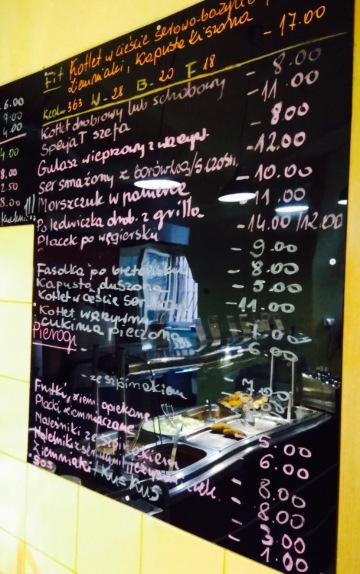 Fit Kotlet w cieście serowo-bazyli
ziemniaki, kapusta kiszona - 17.00
Kcal - 363 W - 28 B - 20 F 18
Kotlet drobiowy lub schabowy - 8.00
Specjał szefa - 11.00
Gulasz wieprzowy z warzyw. - 8.00
Ser smażony z borówką/s.czosn. - 12.00
Morszczuk w panierce - 10.00
Polędwiczka drob. z grilla - 11.00
Placek po węgiersku - 14.00/12.00
- 9.00
Fasolka po bretońsku - 8.00
Kapusta duszona - 5.00
Kotlet w cieście ser - 11.00
Kotlet warzywny - 7.00
cukinia pieczona - 6.00
Pierogi -
- ze szpinakiem
Frytki, ziem. opiekane
Placki ziemniaczane - 5.00
Naleśniki ze szpinakiem - 6.00
Naleśniki z serem - 8.00
- 8.00
Ziemniaki, kus kus - 3.00
sos - 1.00
- 6.00
9.00
4.00
4.00
8.00
2.50
8.00